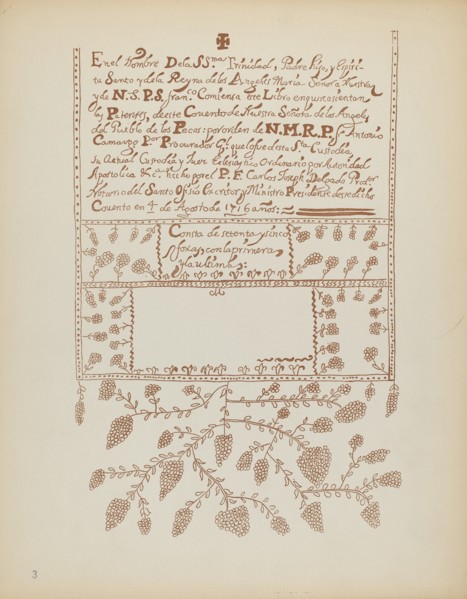 En el Nombre De la SS.ma Trinidad, Padre Hijo, y Espiri-
tu Santo y de la Reyna de los Angeles Maria Señora Nuestra
y de N. S. P. S. Fran.co Comiensa este Libro en que se asientan
las Patentes, de este Convento de Nuestra Señora de los Angeles
del Pueblo de los Pecos: por orden de N. M. R. P. Fr. Antonio
Camargo Por Procurador Gl. que lo fue de esta Sta. Custodia,
Su Actual Custodio y Juez Eclesiastico Ordinario por Autoridad
Apostolica &c.a hecho por el P. F. Carlos Joseph Delgado Pred.or
Notario del Santo Ofisio Escritor y Ministro Presidente de este dicho
Covento en 4 de Agosto de 1716 años:
Consta de setenta y sinco
foxas, con la primera,
y la ultima:
3